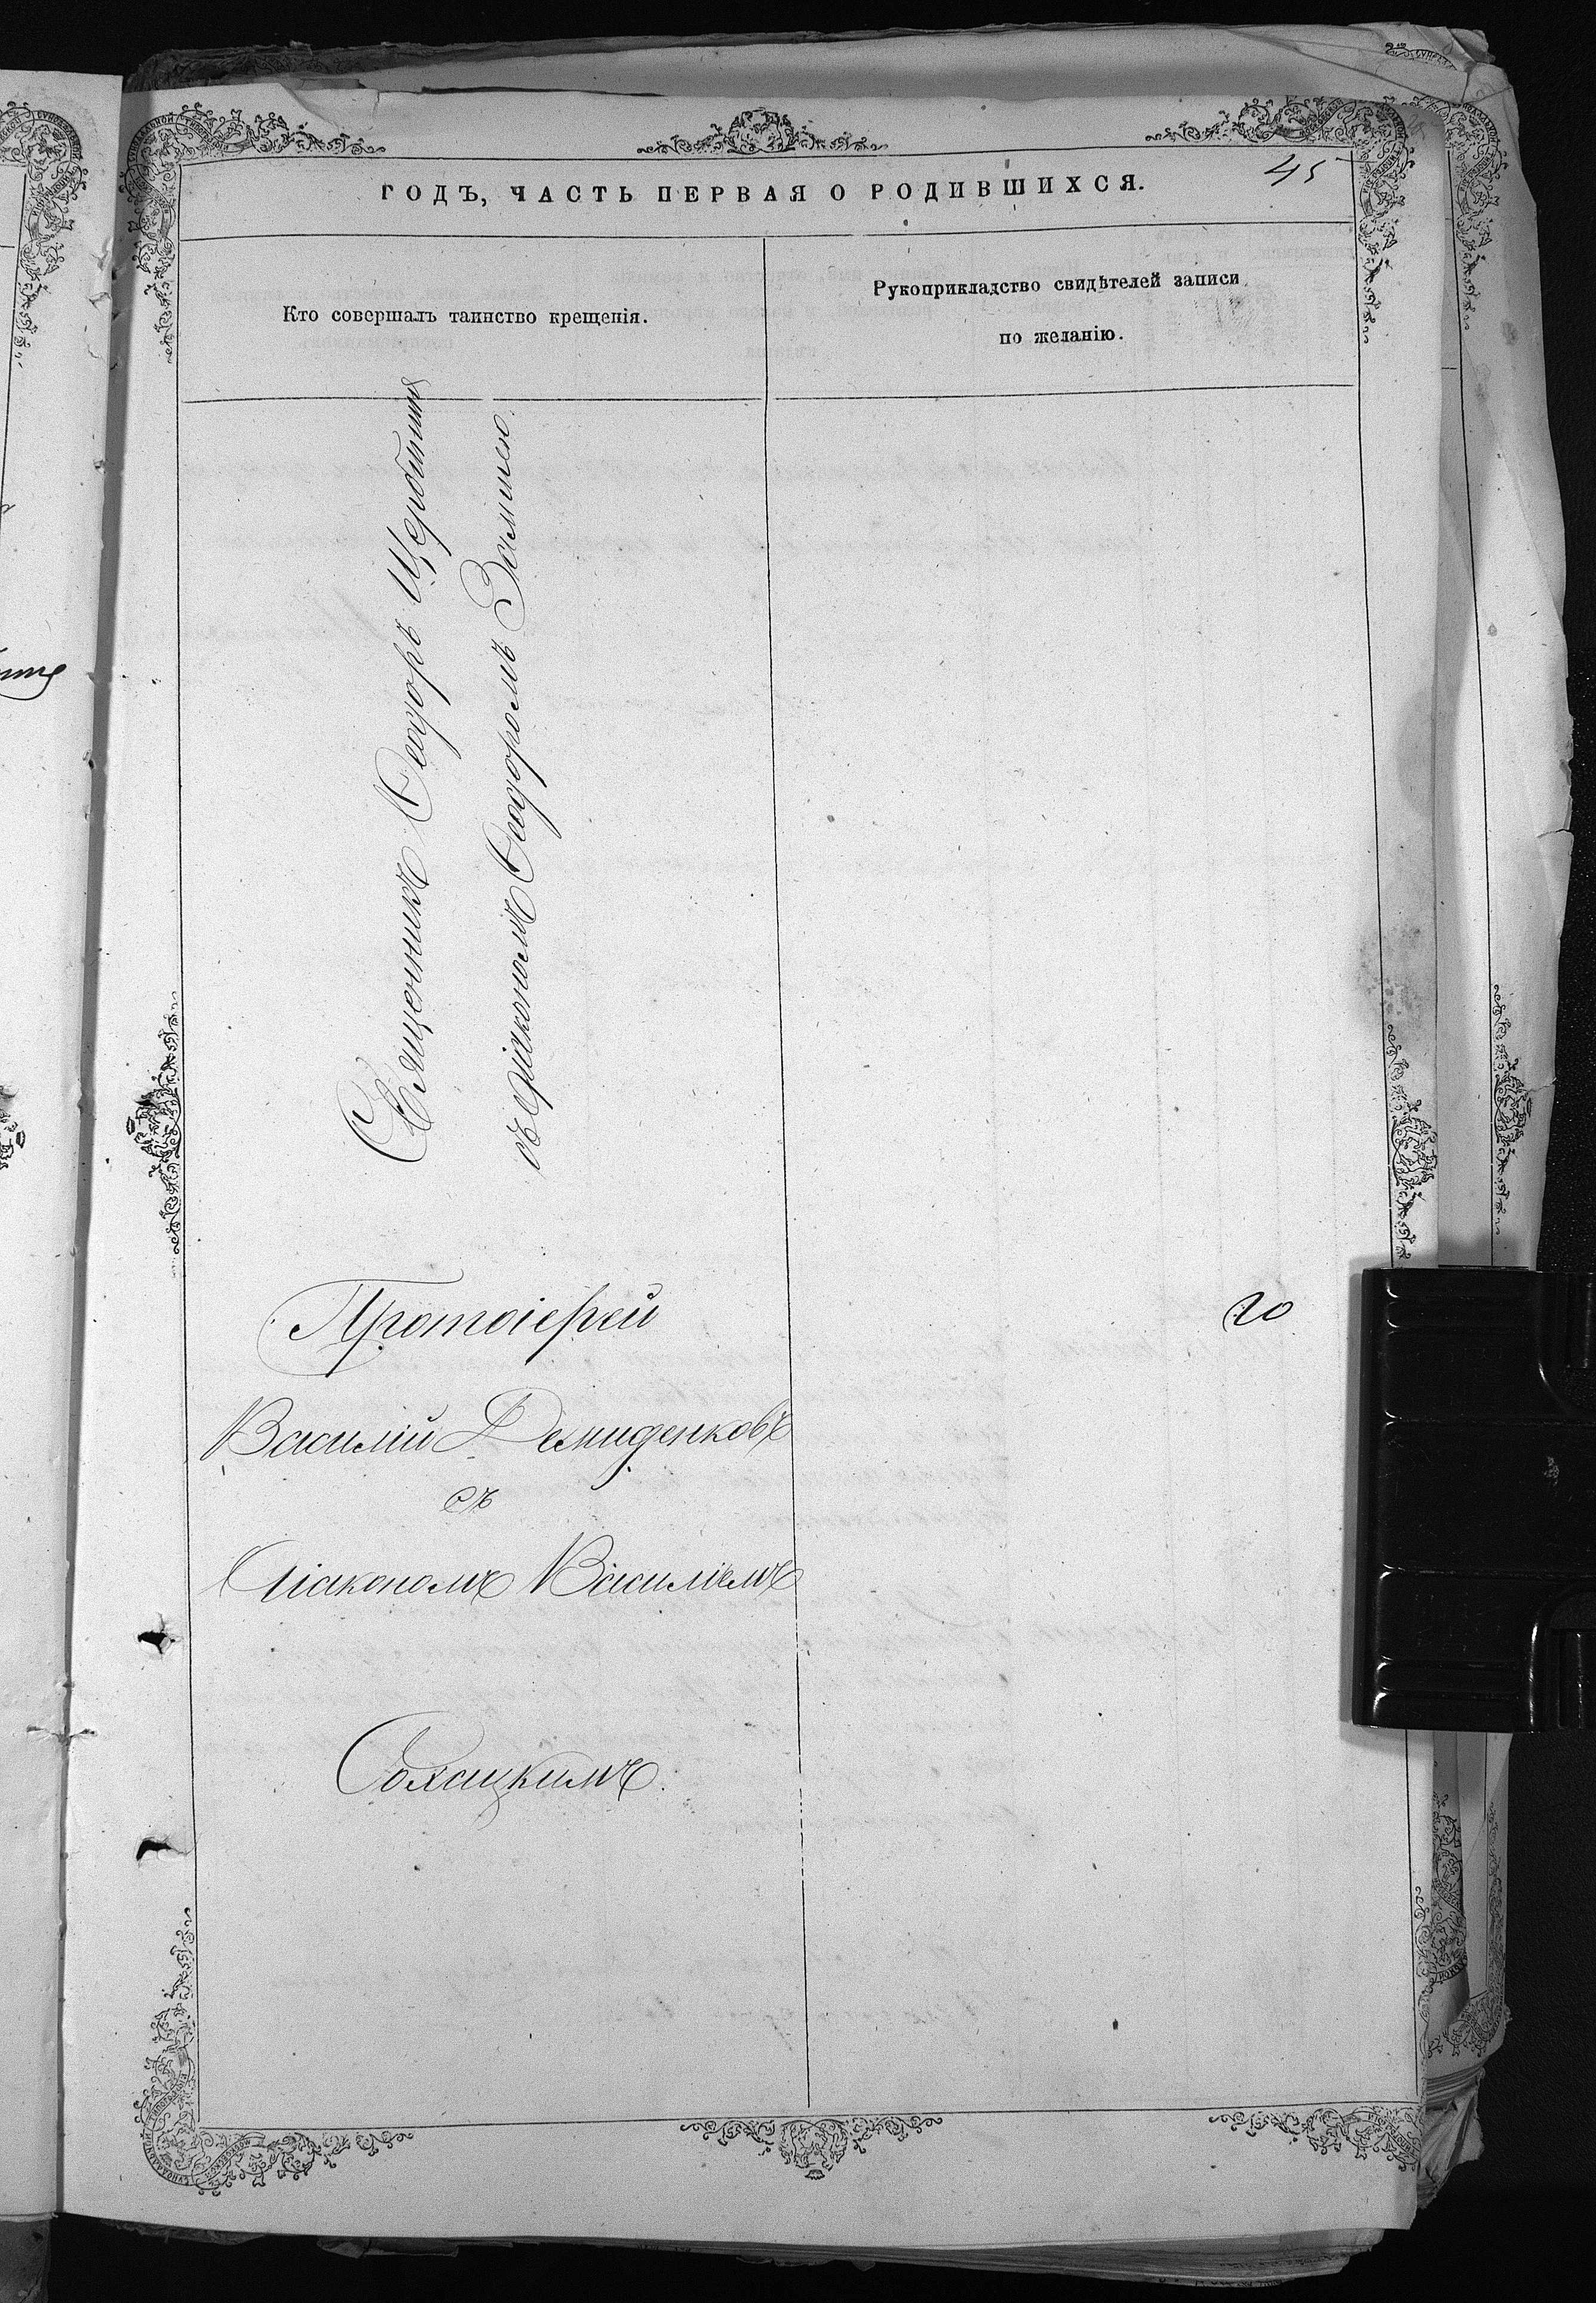 45
ГОДЪ, ЧАСТЬ ПЕРВАЯ О РОДИВШИХСЯ.
Кто совершалъ таинство крещенія.
Рукоприкладство свидѣтелей записи
по желанію.
Священникъ Ѳеодоръ Щербининъ
съ діакономъ Ѳеодоромъ
Протоіерей
20
Василій Демиденковъ
съ
Діакономъ Василіемъ